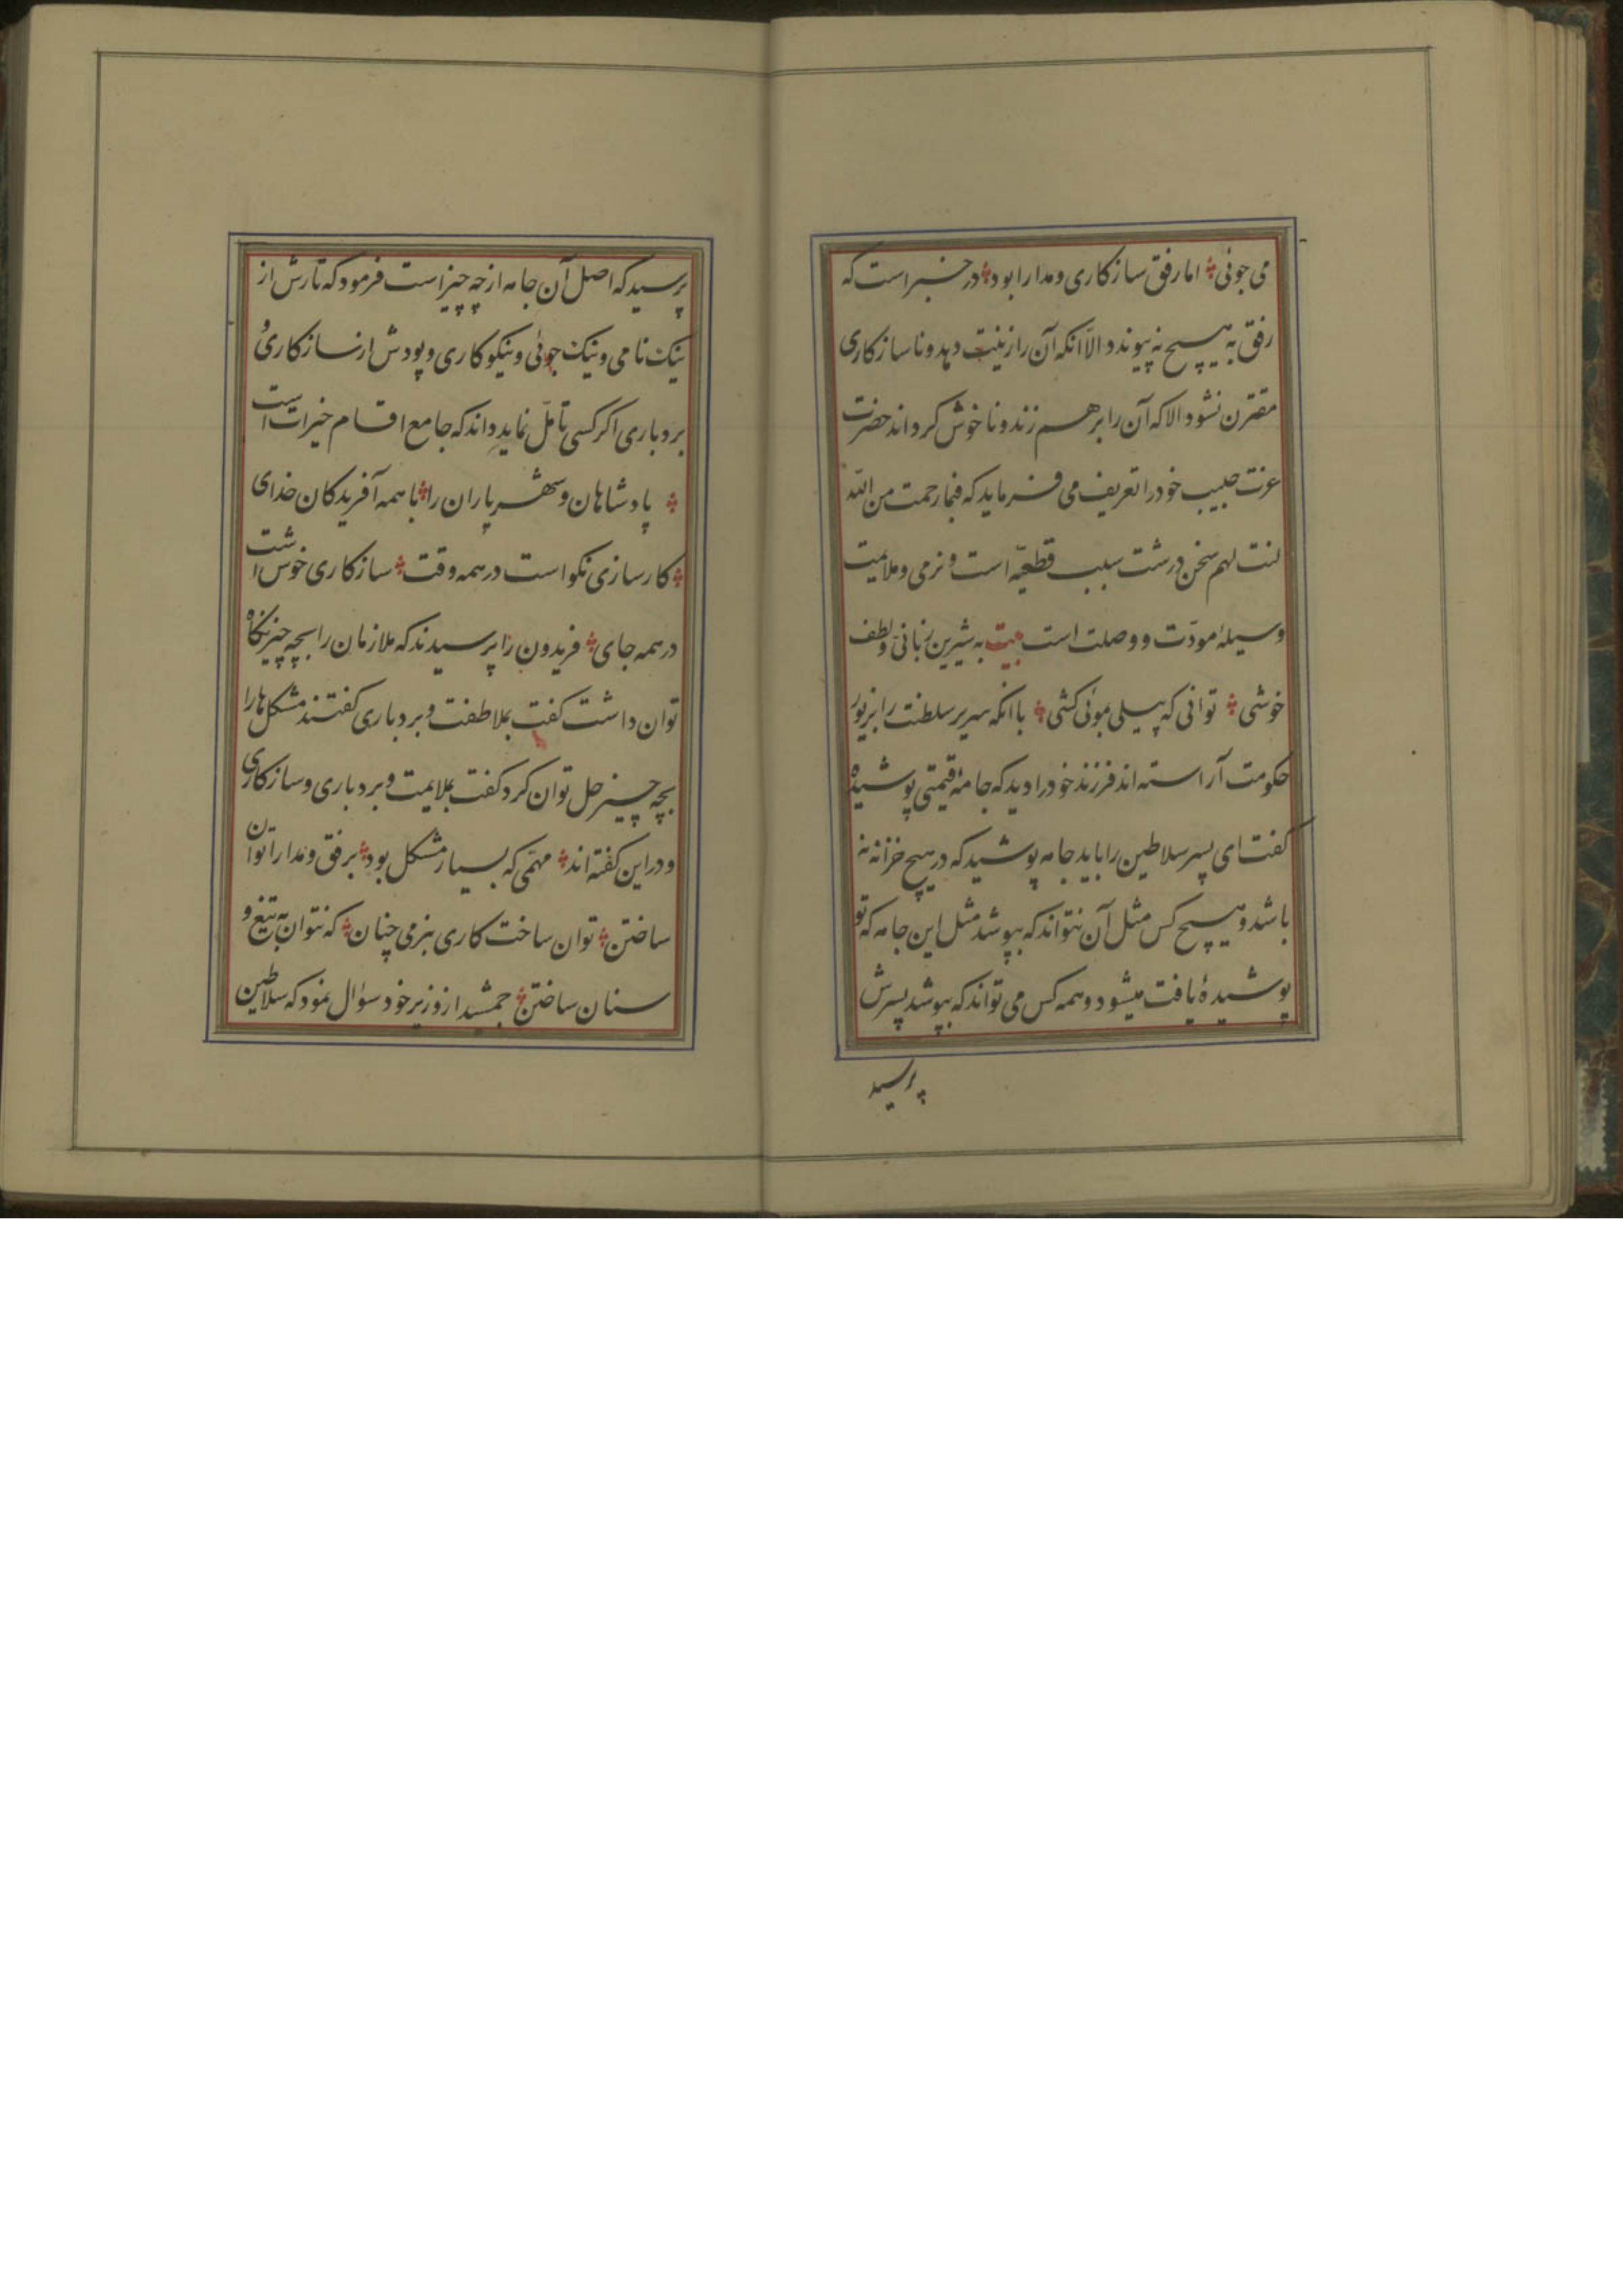 می جوئی ؞ اما رفق سازکاری و مدارا بود ؞ در خبر است که
رفق به هیچ نه پیوندد الا انکه آن را زینت دهد و ناسازکاری
مقترن نشود الا که آن را برهم زند و ناخوش کرداند حضرت
عزت حبیب خود را تعریف می فرماید که فبما رحمت من الله
لنت لهم سخن درشت سبب قطعیّه است و نرمی و ملایمت
وسیلۀ مودّت و وصلت است بیت به شیرین زبانی و لطف
خوشی ؞ توانی که پیلی بموئی کشی ؞ با انکه سریر سلطنت را بزیور
حکومت آراسته اند فرزند خود را دید که جامۀ قیمتی پوشیده
کفت ای پسر سلاطین را باید جامه پوشید که در هیچ خزانه نه
باشد و هیچ کس مثل آن نتواند که بپوشد مثل این جامه که تو
پوشیدۀ یافت میشود و همه کس می تواند که بپوشد پسرش
پرسید
پرسید که اصل آن جامه از چه چیز است فرمود که تارش از
نیک نامی و نیک جوئی و نیکوکاری و پودش از سازکاری و
بردباری اکر کسی تأمّل نماید داند که جامع اقسام خیرات است
؞ پادشاهان و شهریاران را ؞ با همه آفریدکان خدای
؞ کارسازی نکو است در همه وقت ؞ سازکاری خوش است
در همه جای ؞ فریدون را پرسیدند که ملازمان را بچه چیز نکاه
توان داشت کفت بملاطفت و بردباری کفتند مشکل ها را
بچه چیز حل توان کرد کفت بملایمت و بردباری و سازکاری
و در این کفته اند ؞ مهمّی که بسیار مشکل بود ؞ برفق و مدارا توان
ساختن ؞ توان ساخت کاری بنرمی چنان ؞ که نتوان به تیغ و
سنان ساختن ؞ جمشد از وزیر خود سؤال نمود که سلاطین